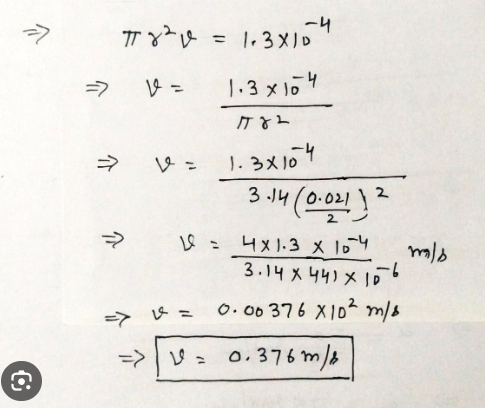 ⇒ πr²v = 1.3×10⁻⁴
⇒ v = 1.3×10⁻⁴ / πr²
⇒ v = 1.3×10⁻⁴ / 3.14(0.021/2)²
⇒ v = 4×1.3×10⁻⁴ / 3.14×441×10⁻⁶ m/s
⇒ v = 0.00376×10² m/s
⇒ v = 0.376 m/s